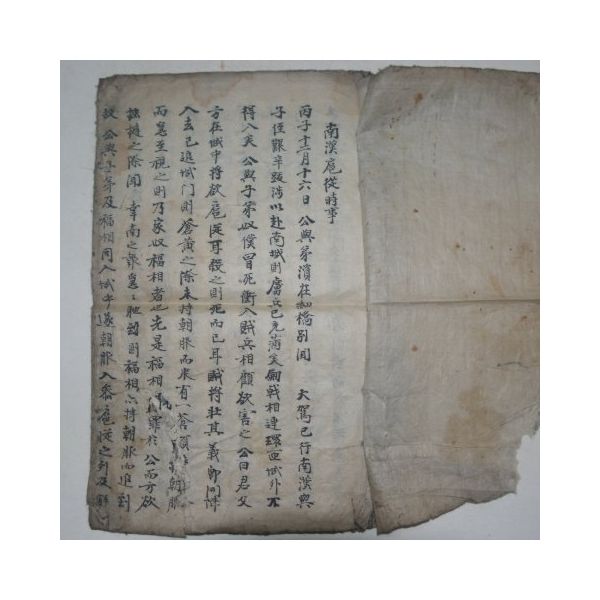 南漢扈從時事
丙子十二月十六日 公與弟濱在 橋別 聞 大駕已行南漢與
子侄艱辛跋涉以赴南城則虜兵已充滿矣 戰相連環四城外不
得入矣 公與子弟奴僕冒死衝入賊兵相顧欲害之公曰君父
方在城中將欲扈從耳殺之則死而已耳賊將壯其義 開陣
入去已造城門則蒼黃之際未持朝服而來有一蒼頭 朝服
而急至視之則乃家奴福相者也先是福相 罪於 公而方欲
之際聞 幸南之報急急馳到則福相亦持朝服而追到
故 公與子弟及福相同入城中遂朝服入參扈從之列及